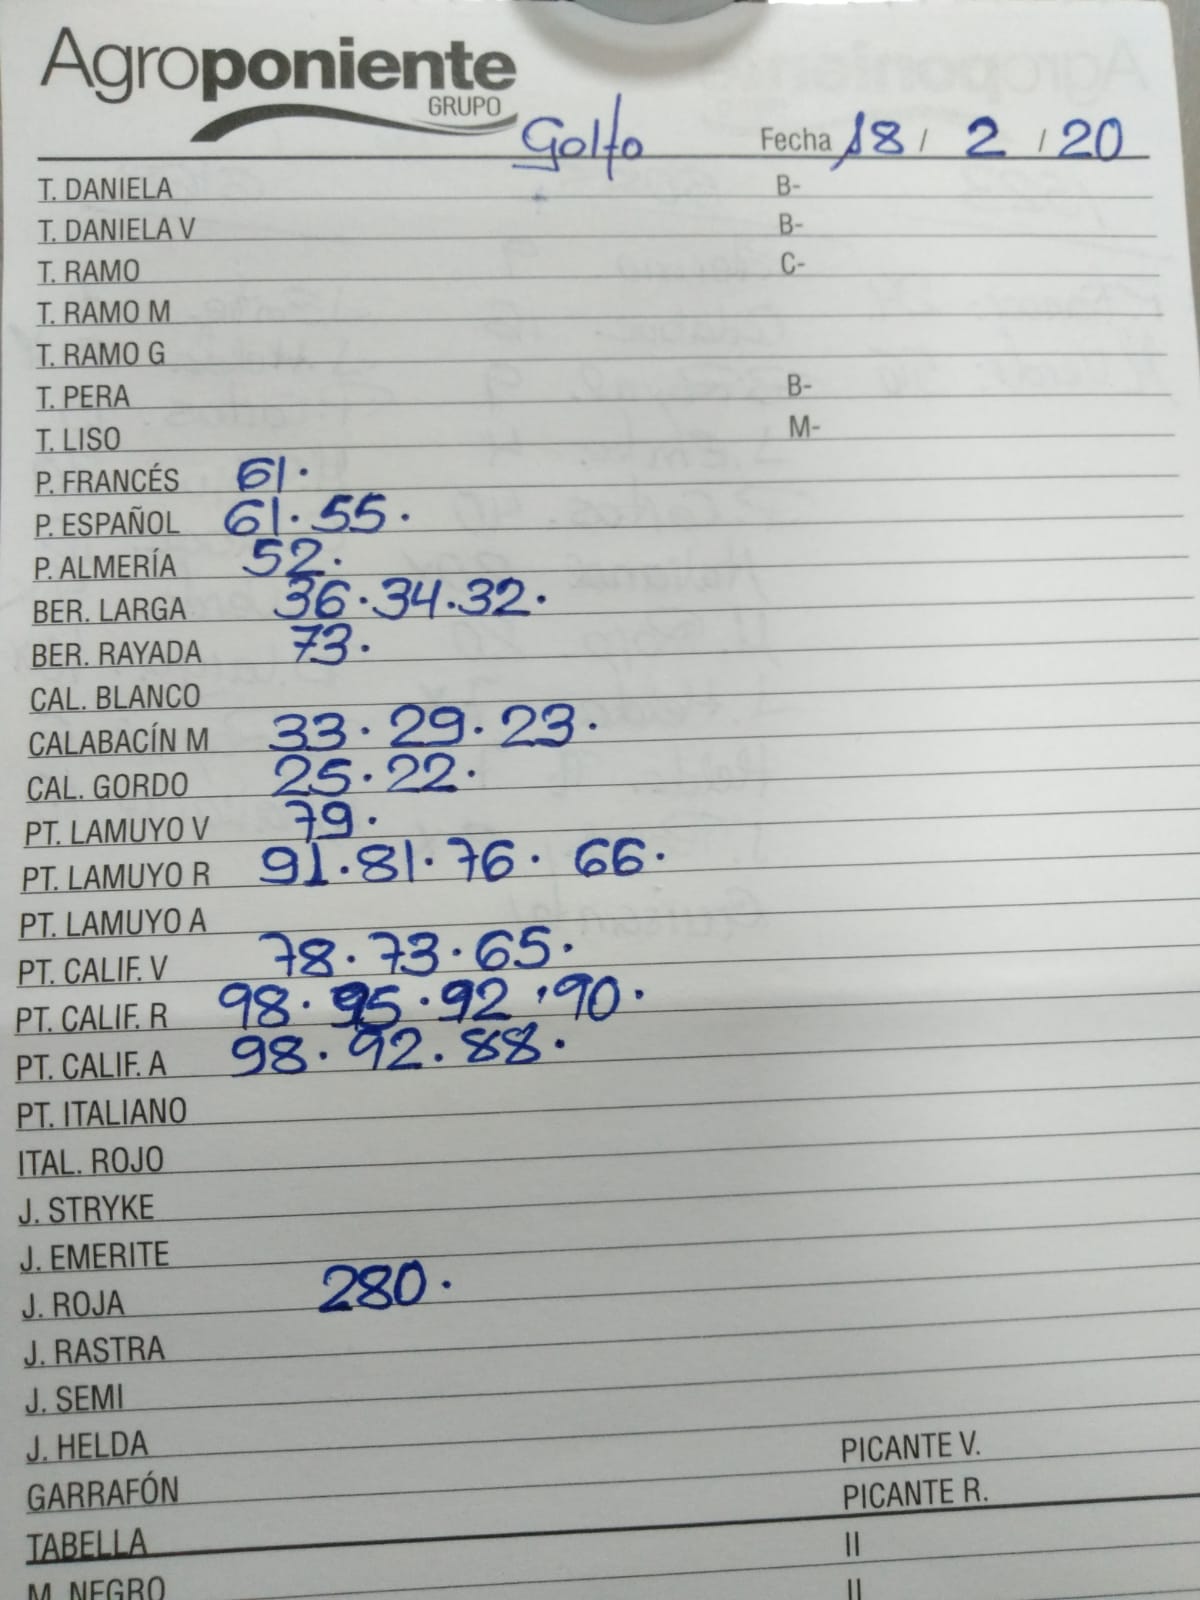 Agroponiente
GRUPO
Golfo Fecha 18 / 2 / 20
T. DANIELA B-
T. DANIELA V B-
T. RAMO C-
T. RAMO M
T. RAMO G
T. PERA B-
T. LISO M-
P. FRANCÉS 61.
P. ESPAÑOL 61. 55.
P. ALMERÍA 52.
BER. LARGA 36. 34. 32.
BER. RAYADA 73.
CAL. BLANCO
CALABACÍN M 33. 29. 23.
CAL. GORDO 25. 22.
PT. LAMUYO V 79.
PT. LAMUYO R 91. 81. 76. 66.
PT. LAMUYO A
PT. CALIF. V 78. 73. 65.
PT. CALIF. R 98. 95. 92. 90.
PT. CALIF. A 98. 92. 88.
PT. ITALIANO
ITAL. ROJO
J. STRYKE
J. EMERITE
J. ROJA 280.
J. RASTRA
J. SEMI
J. HELDA PICANTE V.
GARRAFÓN PICANTE R.
TABELLA II
M. NEGRO II